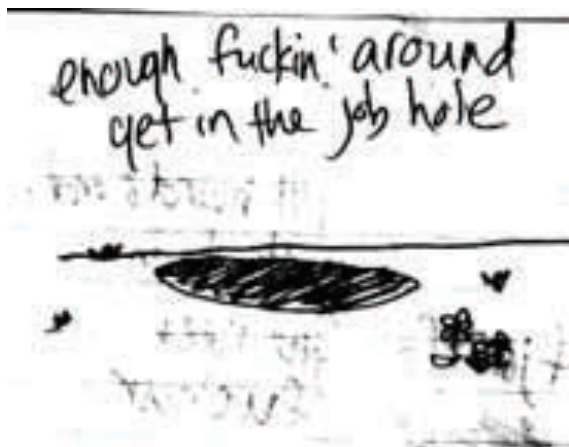 enough fuckin' around
get in the job hole